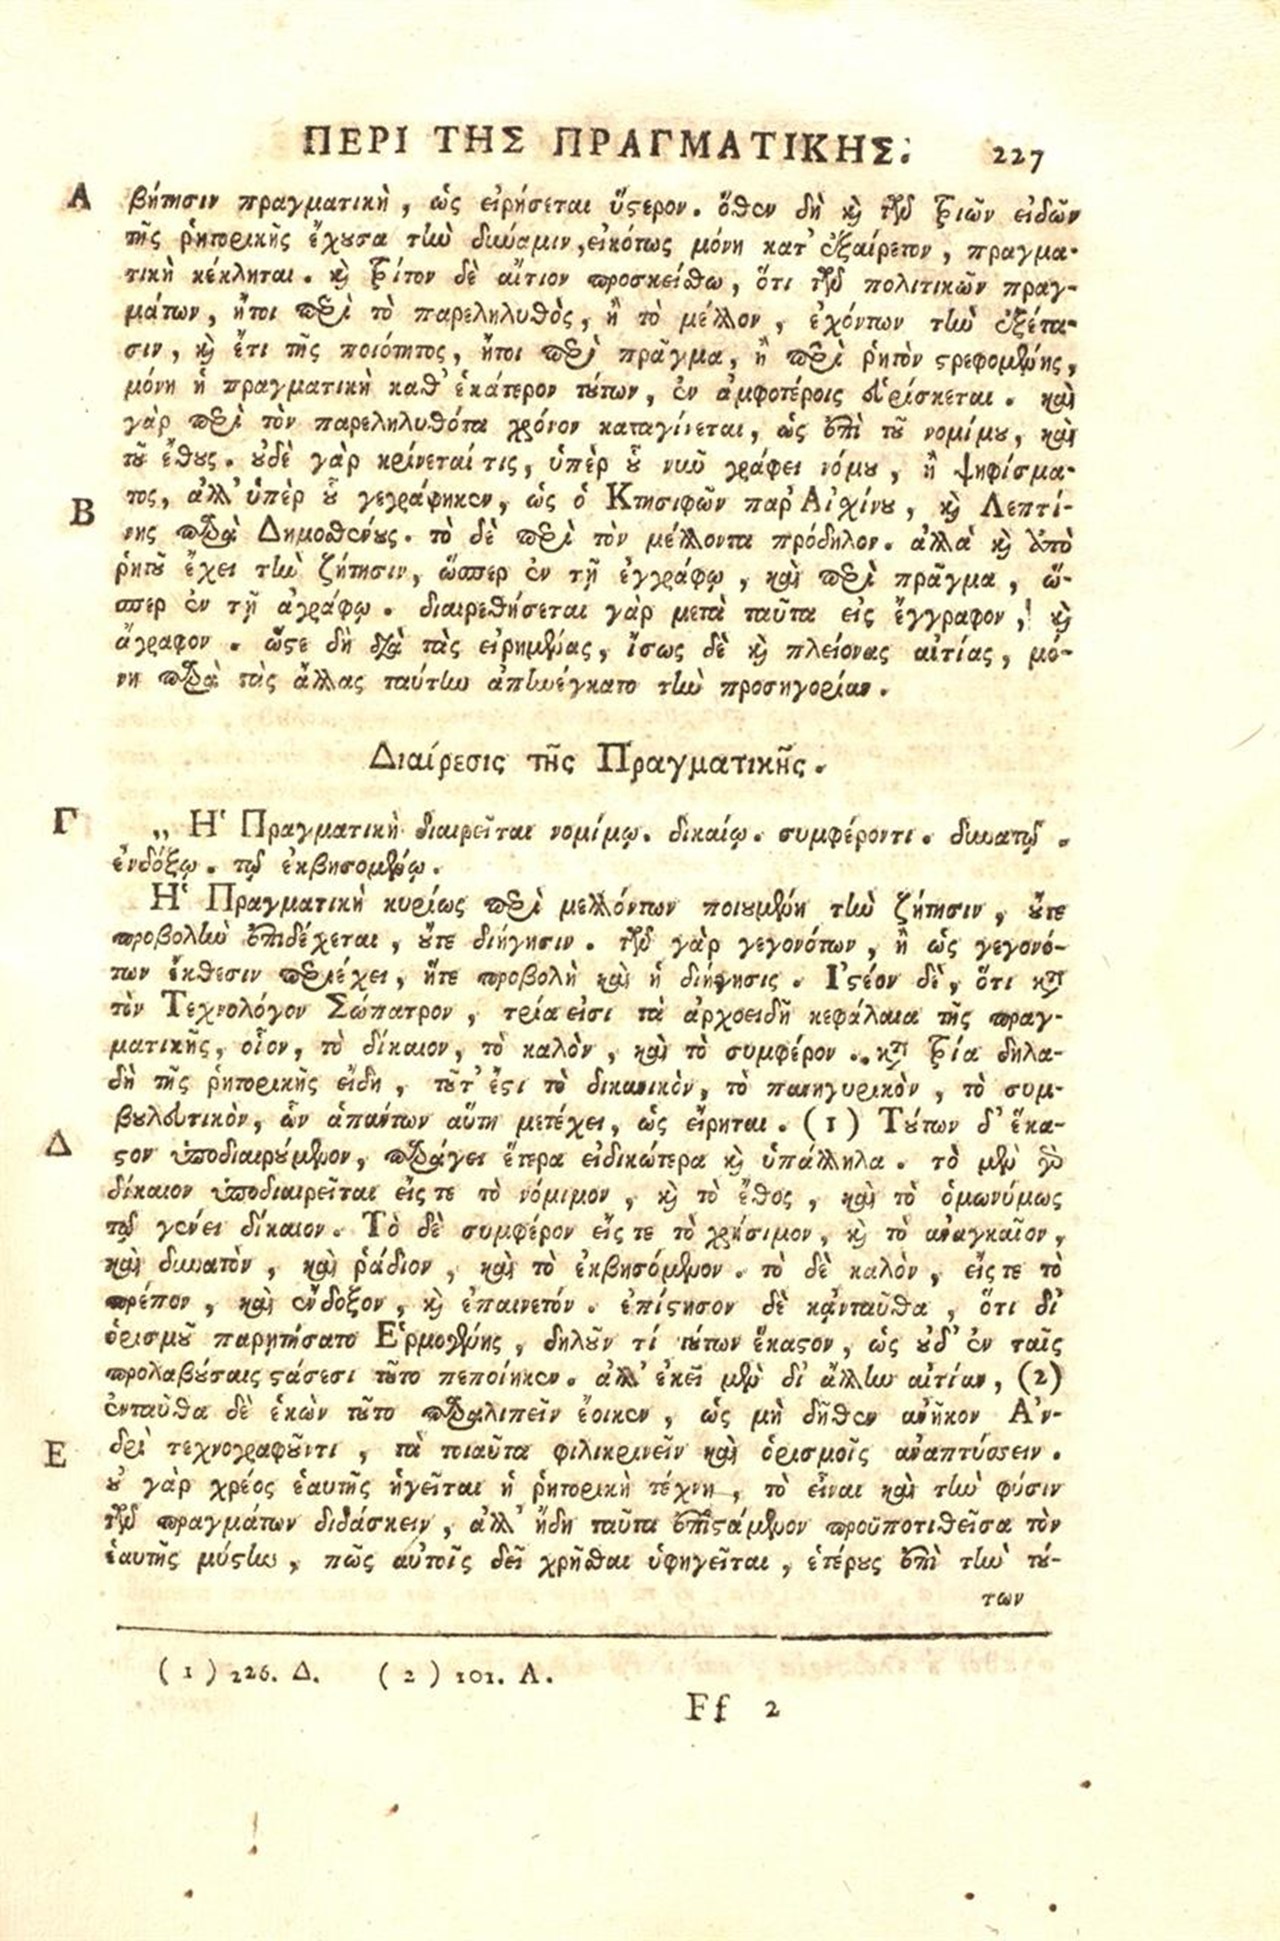 ΠΕΡΙ ΤΗΣ ΠΡΑΓΜΑΤΙΚΗΣ. 227
Α βήτησιν πραγματικὴ, ὡς εἰρήσεται ὕστερον. ὅθεν δὴ καὶ τῶν τριῶν εἰδῶν
τῆς ῥητορικῆς ἔχουσα τὴν δύναμιν, εἰκότως μόνη κατ' ἐξαίρετον, πραγμα-
τικὴ κέκληται. καὶ τρίτον δὲ αἴτιον προσκείσθω, ὅτι τῶν πολιτικῶν πραγ-
μάτων, ἤτοι περὶ τὸ παρεληλυθὸς, ἢ τὸ μέλλον, ἐχόντων τὴν ἐξέτα-
σιν, καὶ ἔτι τῆς ποιότητος, ἤτοι περὶ πρᾶγμα, ἢ περὶ ῥητὸν στρεφομένης,
μόνη ἡ πραγματικὴ καθ' ἑκάτερον τούτων, ἐν ἀμφοτέροις εὑρίσκεται. καὶ
γὰρ περὶ τὸν παρεληλυθότα χρόνον καταγίνεται, ὡς ἐπὶ τοῦ νομίμου, καὶ
τοῦ ἔθους. οὐδὲ γὰρ κρίνεταί τις, ὑπὲρ οὗ νῦν γράφει νόμου, ἢ ψηφίσμα-
Β τος, ἀλλ' ὑπὲρ οὗ γεγράφηκεν, ὡς ὁ Κτησιφῶν παρ' Αἰσχίνου, καὶ Λεπτί-
νης παρὰ Δημοσθένους. τὸ δὲ περὶ τὸν μέλλοντα πρόδηλον. ἀλλὰ καὶ ἀπὸ
ῥητοῦ ἔχει τὴν ζήτησιν, ὥσπερ ἐν τῇ ἐγγράφῳ, καὶ περὶ πρᾶγμα, ὥ-
σπερ ἐν τῇ ἀγράφῳ. διαιρεθήσεται γὰρ μετὰ ταῦτα εἰς ἔγγραφον, καὶ
ἄγραφον. ὥστε δὴ διὰ τὰς εἰρημένας, ἴσως δὲ καὶ πλείονας αἰτίας, μό-
νη παρὰ τὰς ἄλλας ταύτην ἀπηνέγκατο τὴν προσηγορίαν.
Διαίρεσις τῆς Πραγματικῆς.
Γ „ Ἡ Πραγματικὴ διαιρεῖται νομίμῳ. δικαίῳ. συμφέροντι. δυνατῷ.
ἐνδόξῳ. τῷ ἐκβησομένῳ.
Ἡ Πραγματικὴ κυρίως περὶ μελλόντων ποιουμένη τὴν ζήτησιν, οὔτε
προβολὴν ἐπιδέχεται, οὔτε διήγησιν. τῶν γὰρ γεγονότων, ἢ ὡς γεγονό-
των ἔκθεσιν περιέχει, ἥτε προβολὴ καὶ ἡ διήγησις. Ἰστέον δὲ, ὅτι κατὰ
τὸν Τεχνολόγον Σώπατρον, τρία εἰσι τὰ ἀρχοειδῆ κεφάλαια τῆς πραγ-
ματικῆς, οἷον, τὸ δίκαιον, τὸ καλὸν, καὶ τὸ συμφέρον., κατὰ τρία δηλα-
δὴ τῆς ῥητορικῆς εἴδη, τοῦτ' ἔστι τὸ δικανικὸν, τὸ πανηγυρικὸν, τὸ συμ-
βουλευτικὸν, ὧν ἁπάντων αὕτη μετέχει, ὡς εἴρηται. (1) Τούτων δ' ἕκα-
Δ στον ὑποδιαιρούμενον, παράγει ἕτερα εἰδικώτερα καὶ ὑπάλληλα. τὸ μὲν γὰρ
δίκαιον ὑποδιαιρεῖται εἴς τε τὸ νόμιμον, καὶ τὸ ἔθος, καὶ τὸ ὁμωνύμως
τῷ γένει δίκαιον. Τὸ δὲ συμφέρον εἴς τε τὸ χρήσιμον, καὶ τὸ ἀναγκαῖον,
καὶ δυνατὸν, καὶ ῥάδιον, καὶ τὸ ἐκβησόμενον. τὸ δὲ καλὸν, εἴς τε τὸ
πρέπον, καὶ ἔνδοξον, καὶ ἐπαινετόν. ἐπίστησον δὲ κᾀνταῦθα, ὅτι δι'
ὁρισμοῦ παρῃτήσατο Ἑρμογένης, δηλοῦν τί τούτων ἕκαστον, ὡς οὐδ' ἐν ταῖς
προλαβούσαις στάσεσι τοῦτο πεποίηκεν. ἀλλ' ἐκεῖ μὲν δι' ἄλλην αἰτίαν, (2)
ἐνταῦθα δὲ ἑκὼν τοῦτο παραλιπεῖν ἔοικεν, ὡς μὴ δῆθεν ἀνῆκον Ἀν-
Ε δρὶ τεχνογραφοῦντι, τὰ τοιαῦτα φιλικρινεῖν καὶ ὁρισμοῖς ἀναπτύσσειν.
οὐ γὰρ χρέος ἑαυτῆς ἡγεῖται ἡ ῥητορικὴ τέχνη, τὸ εἶναι καὶ τὴν φύσιν
τῶν πραγμάτων διδάσκειν, ἀλλ' ἤδη ταῦτα ἐπιστάμενον προϋποτιθεῖσα τὸν
ἑαυτῆς μύστην, πῶς αὐτοῖς δεῖ χρῆσθαι ὑφηγεῖται, ἑτέρους ἐπὶ τὴν τού-
των
(1) 226. Δ. (2) 101. Α.
Ff 2